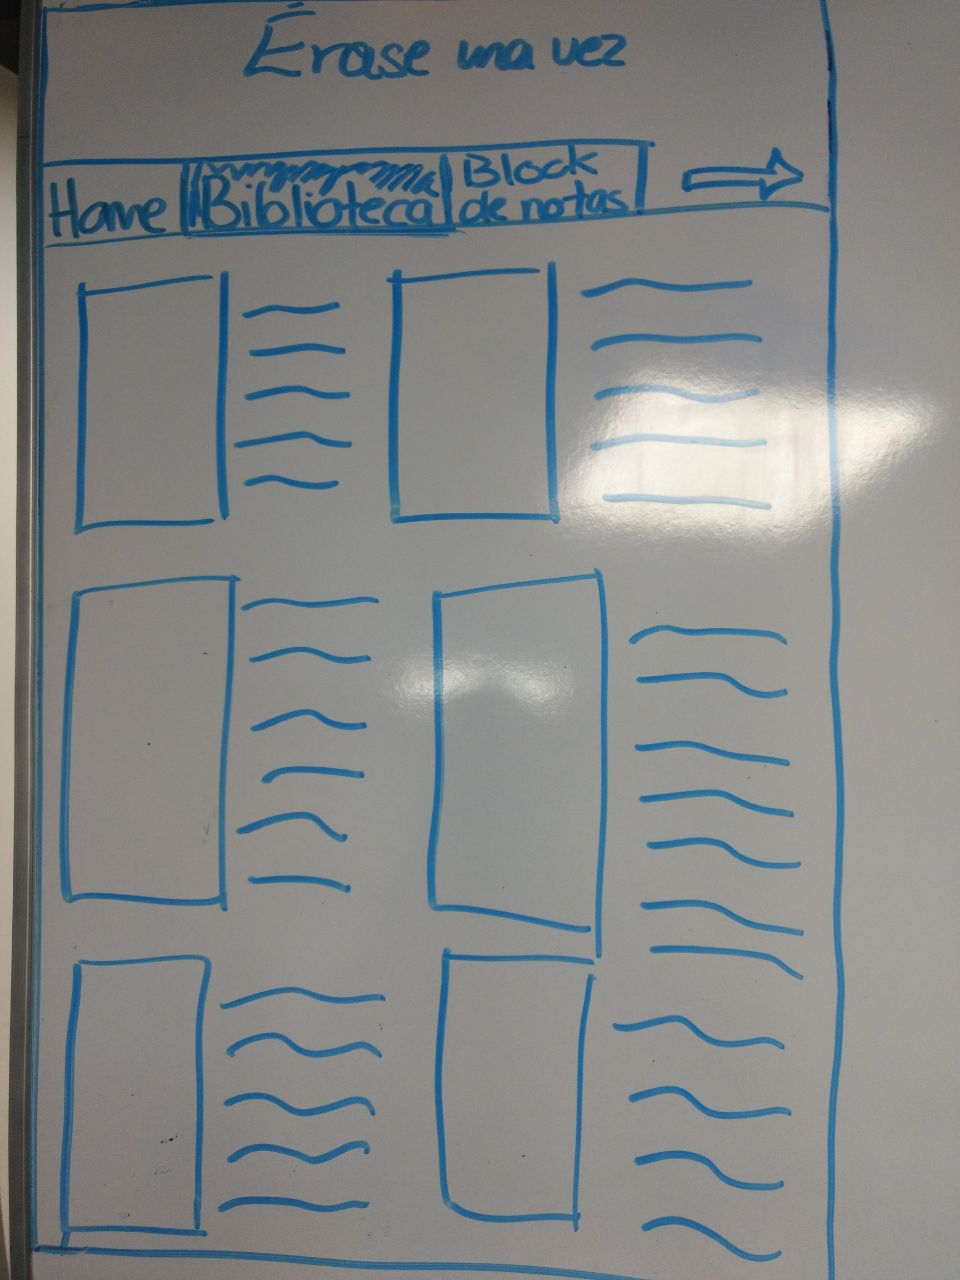 Érase una vez
Home
Biblioteca
Block
de notas